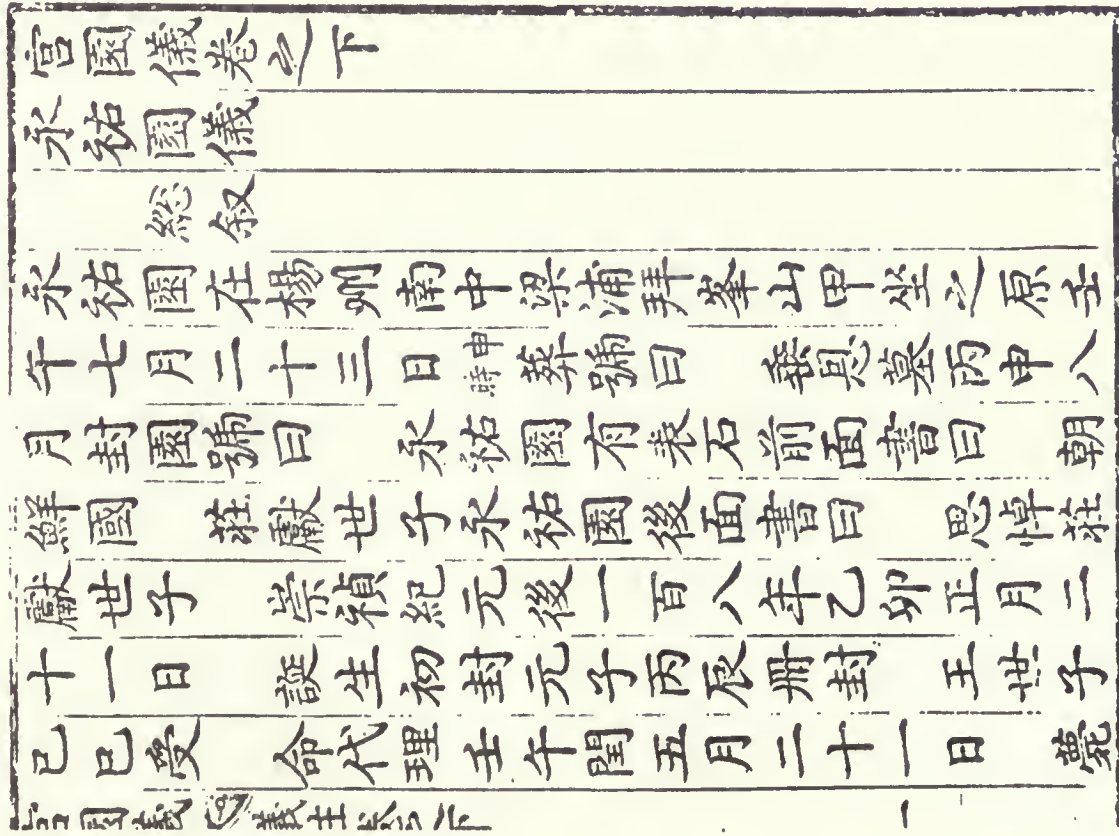 宮園儀卷之下
永祐園儀
總叙
永祐園在楊州南中梁浦拜峯山甲坐之原壬
午七月二十三日申時葬號曰 垂恩墓丙申八
月封園號曰 永祐園有表石前面書曰 朝
鮮國 莊獻世子永祐園後面書曰 思悼莊
獻世子 崇禎紀元後一百八年乙卯正月二
十一日 誕生初封元子丙辰冊封 王世子
己巳受 命代理壬午閏五月二十一日 薨
宮園儀 一